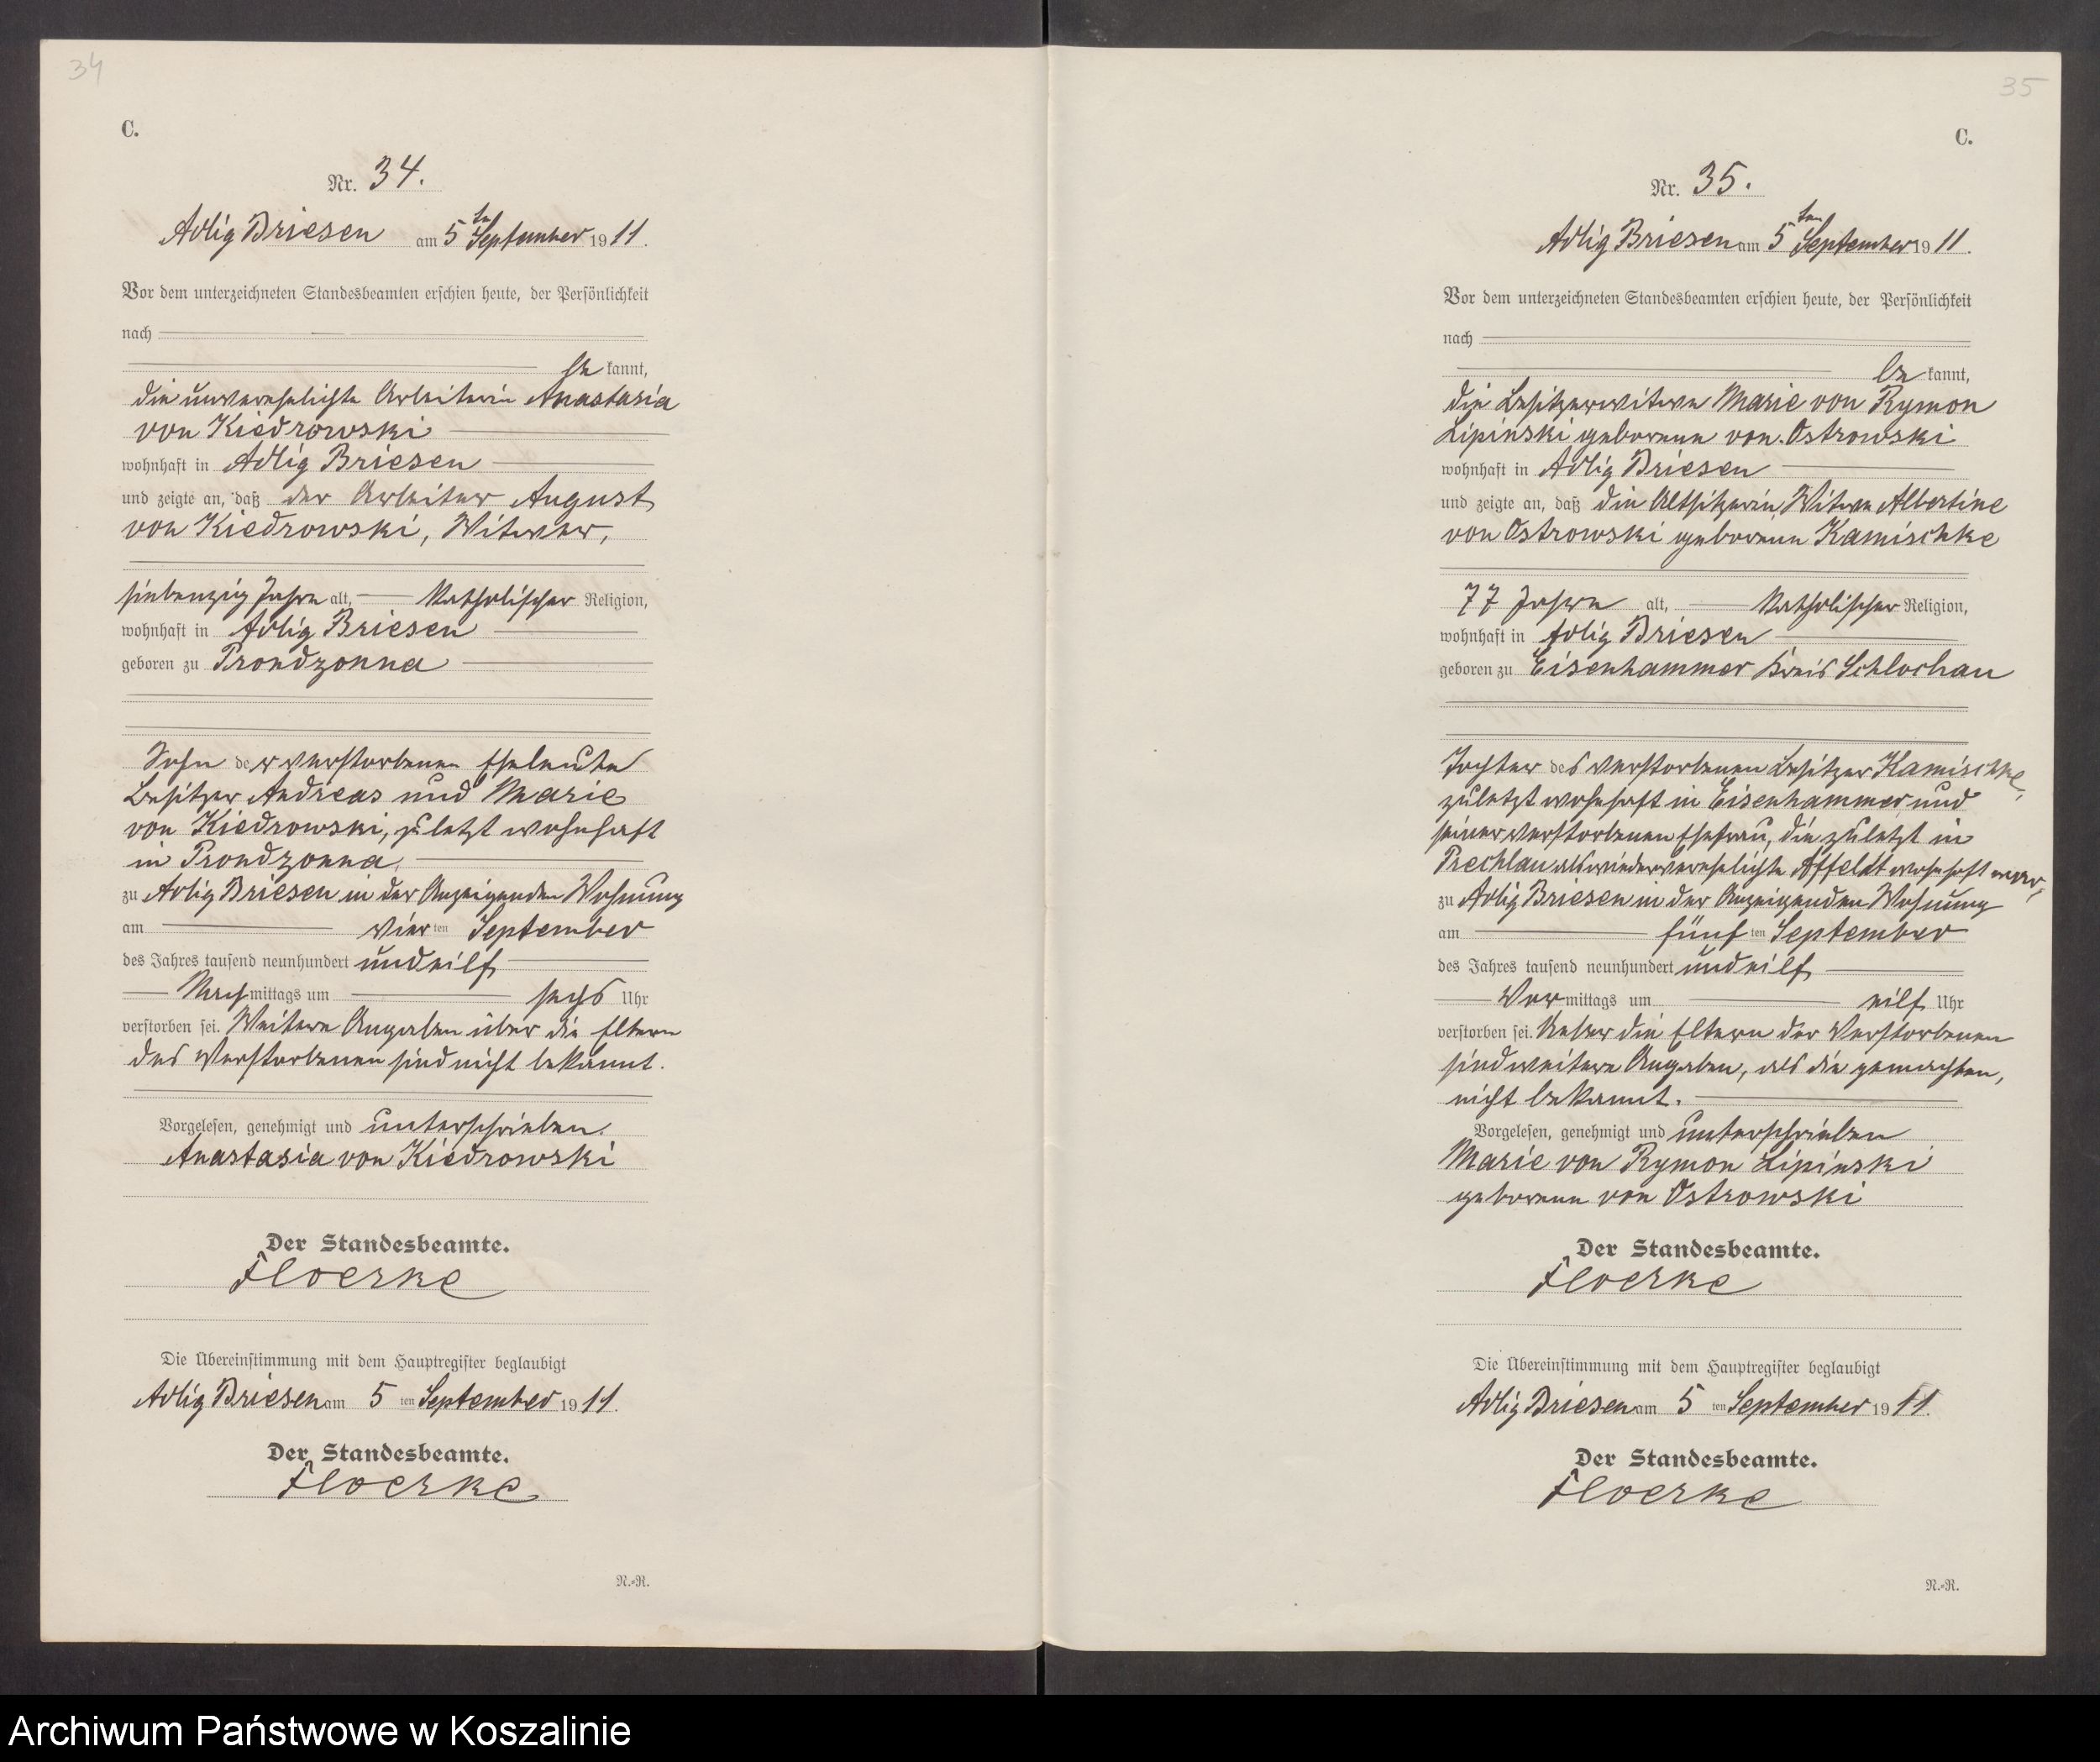 34
C.
Nr. 34.
Adlig Briesen am 5 ten September 1911.
Vor dem unterzeichneten Standesbeamten erschien heute, der Persönlichkeit
nach
be kannt,
die unverehelichte Arbeiterin Anastasia
von Kiedrowski
wohnhaft in Adlig Briesen
und zeigte an, daß der Arbeiter August
von Kiedrowski, Witwer,
siebenzig Jahre alt, Katholischer Religion,
wohnhaft in Adlig Briesen
geboren zu Prondzonna
Sohn der verstorbenen Eheleute
Besitzer Andreas und Marie
von Kiedrowski, zuletzt wohnhaft
in Prondzonna,
zu Adlig Briesen in der Anzeigenden Wohnung
am vier ten September
des Jahres tausend neunhundert und eilf
Nach mittags um sechs Uhr
verstorben sei. Weitere Angaben über die Eltern
des Verstorbenen sind nicht bekannt.
Vorgelesen, genehmigt und unterschrieben.
Anastasia von Kiedrowski
Der Standesbeamte.
Floerke
Die Übereinstimmung mit dem Hauptregister beglaubigt
Adlig Briesen am 5 ten September 1911.
Der Standesbeamte.
Floerke
N.-R.
35
C.
Nr. 35.
Adlig Briesen am 5 ten September 1911.
Vor dem unterzeichneten Standesbeamten erschien heute, der Persönlichkeit
nach
be kannt,
die Besitzerwitwe Marie von Rymon
Lipinski geborene von Ostrowski
wohnhaft in Adlig Briesen
und zeigte an, daß die Altsitzerin, Witwe Albertine
von Ostrowski geborene Kamischke
77 Jahre alt, Katholischer Religion,
wohnhaft in Adlig Briesen
geboren zu Eisenhammer Kreis Schlochau
Tochter des verstorbenen Besitzer Kamischke,
zuletzt wohnhaft in Eisenhammer, und
seiner verstorbenen Ehefrau, die zuletzt in
Prechlau als wiederverehelichte Affeldt wohnhaft war,
zu Adlig Briesen in der Anzeigenden Wohnung
am fünf ten September
des Jahres tausend neunhundert und eilf
Vor mittags um eilf Uhr
verstorben sei. Ueber die Eltern der Verstorbenen
sind weitere Angaben, als die gemachten,
nicht bekannt.
Vorgelesen, genehmigt und unterschrieben
Marie von Rymon Lipinski
geborene von Ostrowski
Der Standesbeamte.
Floerke
Die Übereinstimmung mit dem Hauptregister beglaubigt
Adlig Briesen am 5 ten September 1911.
Der Standesbeamte.
Floerke
N.-R.
Archiwum Państwowe w Koszalinie